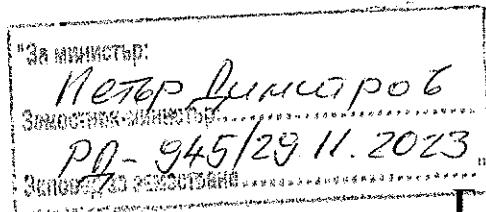 "За министър:
Петър Димитров
Заместник-министър
РД-945/29.11.2023"
Заповед за заместване